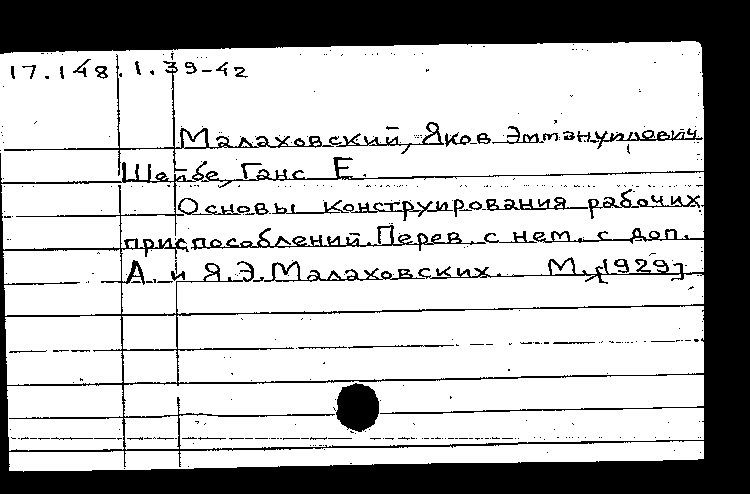 17.148.1.39-42
Малаховский, Яков Эммануилович
Шейбе, Ганс Е.
Основы конструирования рабочих
приспособлений. Перев. с нем. с доп.
А. и Я.Э. Малаховских. М., [1929]